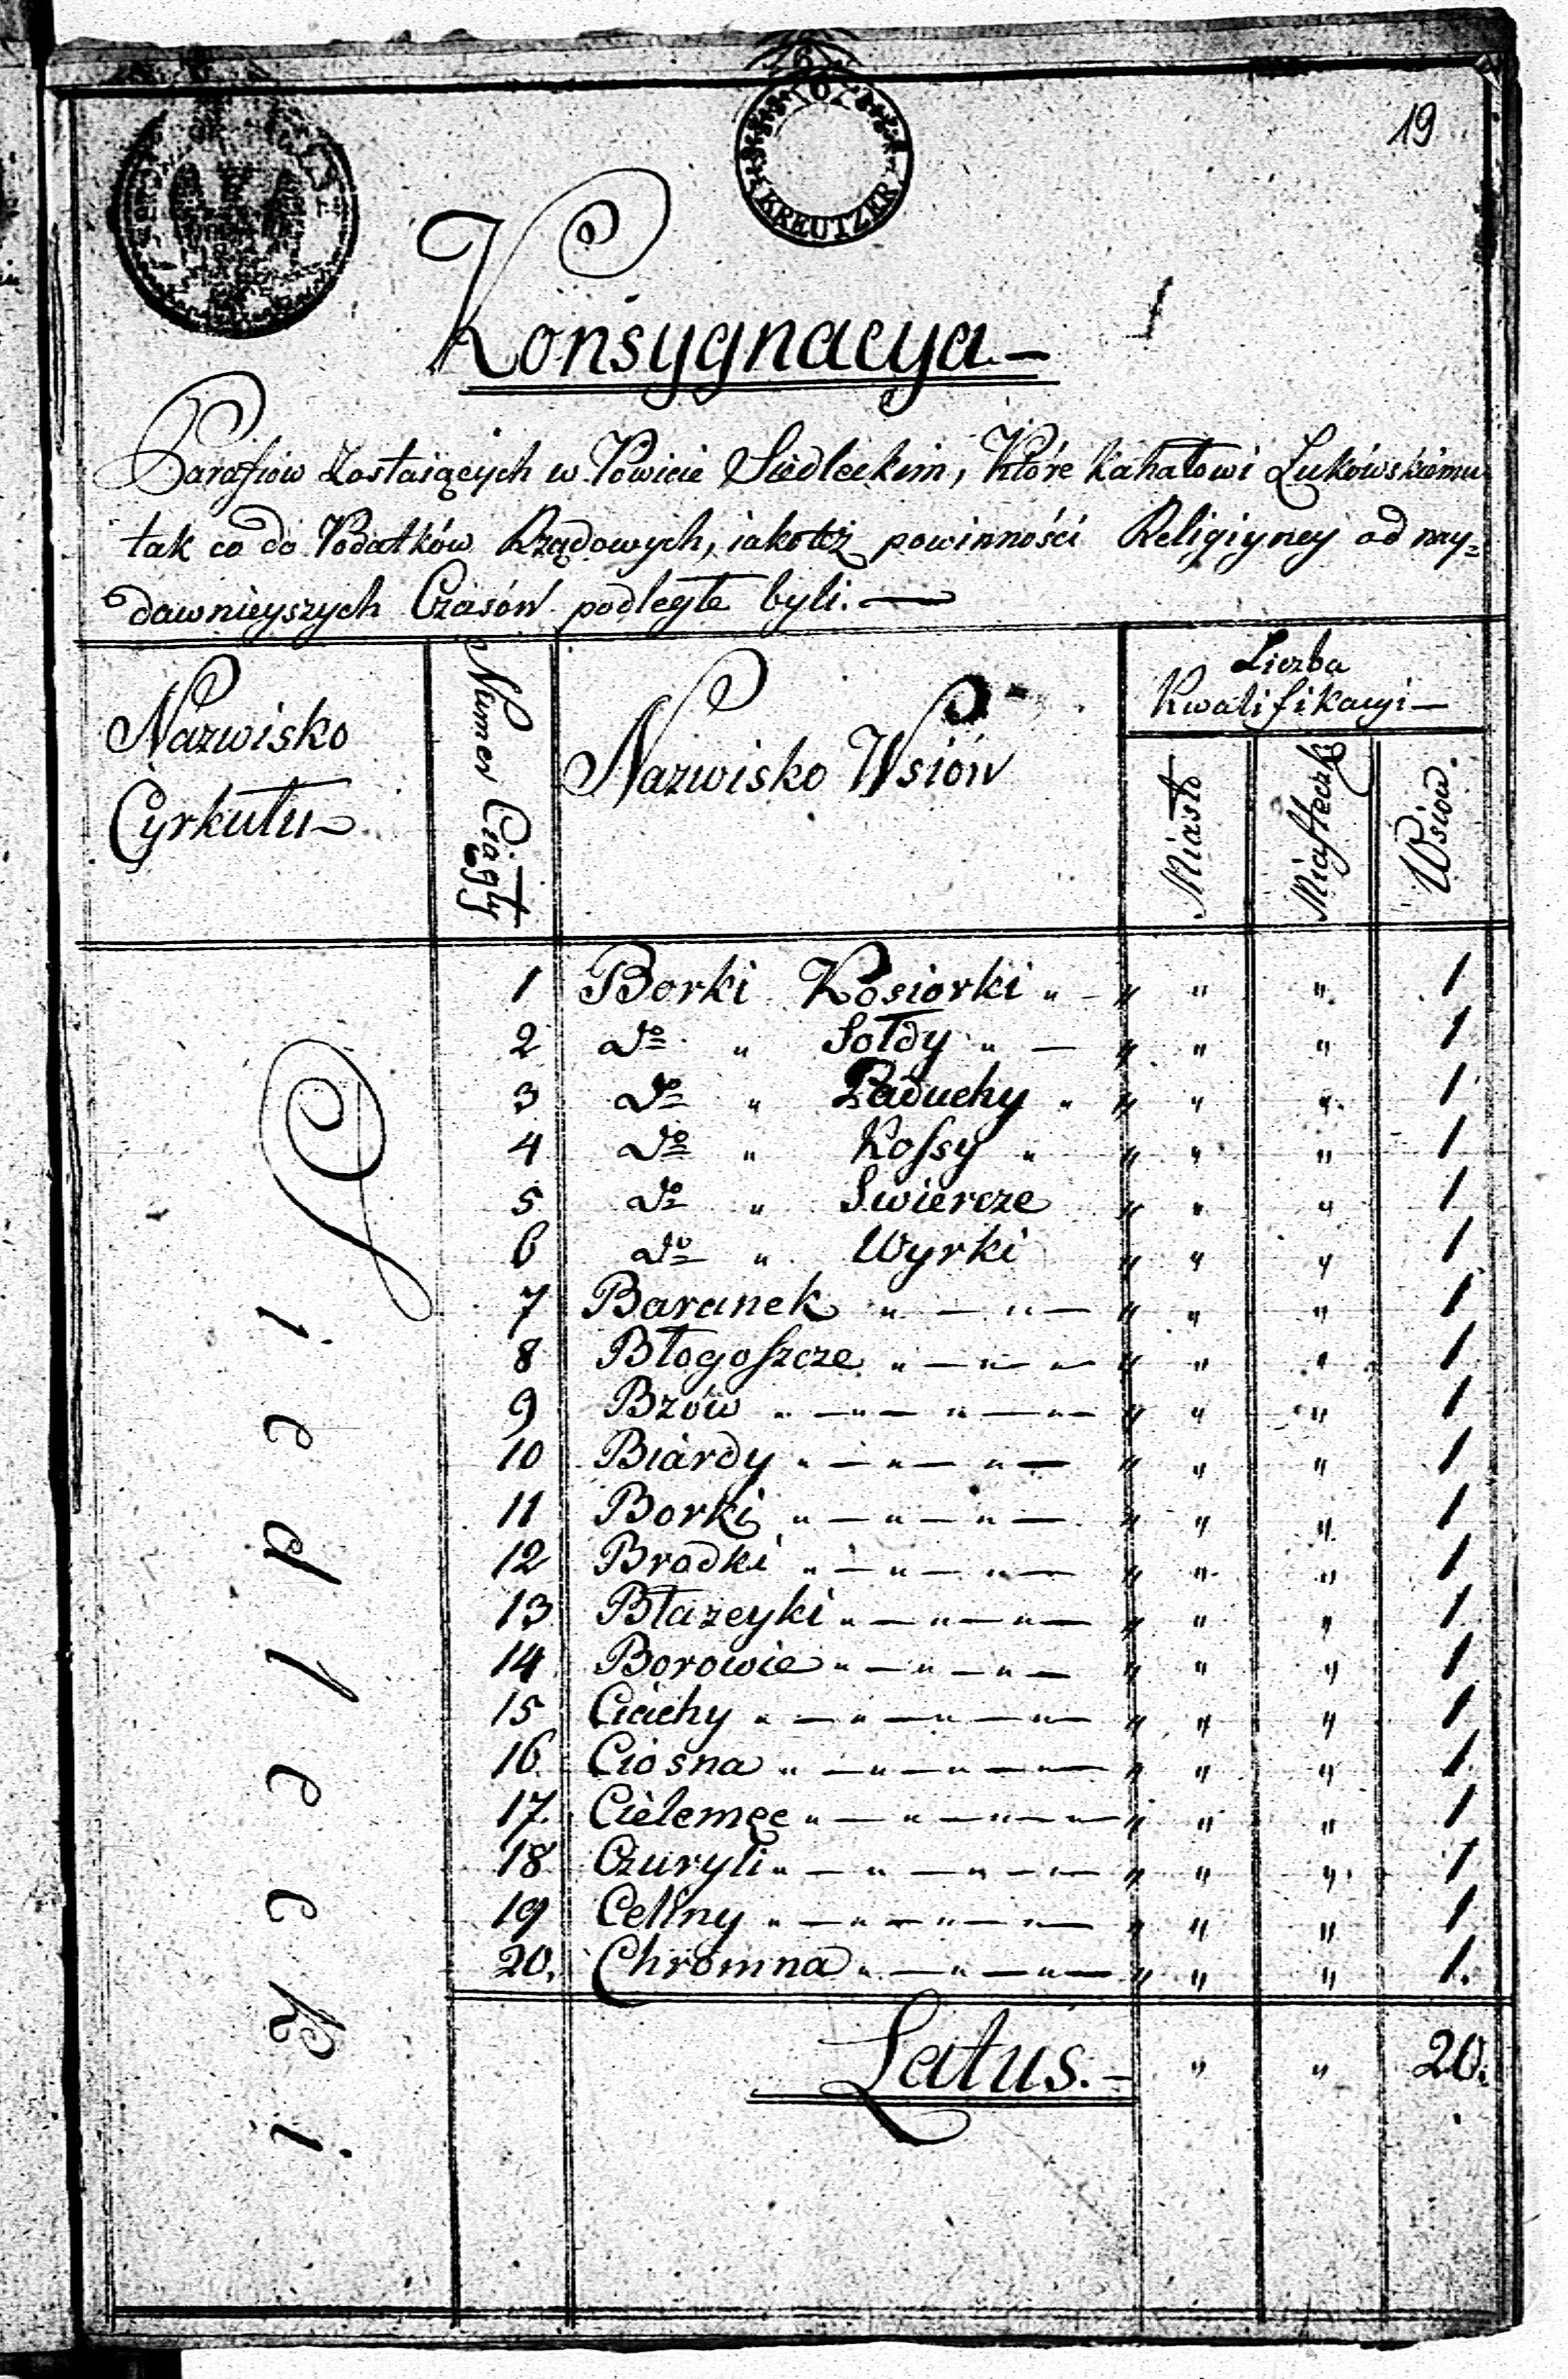 19
KREUTZER
Konsygnacya –
Parafiów zostaiących w Powicie Siedleckim, Które Kahałowi Łukówskiemu
tak co do Podatków Rządowych, iakotéż powinności Religiyney od nay=
dawnieyszych Czasów podległe byli. —
Nazwisko
Cyrkułu
Numer Ciągły
Nazwisko Wsiów
Liczba
Kwalifikacyi –
Miasto
Miasteczk
Wsiów.
Siedlecki
1 Borki Kosiorki " – " " " 1
2 do " Sołdy " – " " " 1
3 do " Paduchy " " " " 1
4 do " Kossy " " " " 1
5 do " Swiercze " " " 1
6 do " Wyrki " " " 1
7 Baranek " – " – " " " 1
8 Błogoszcze " – " – " – " " " 1
9 Bzów " – " – " – " – " " " 1
10 Biardy " – " – " – " " " 1
11 Borki " – " – " – " " " 1
12 Bradki " – " – " – " " " 1
13 Błazeyki " – " – " – " " " 1
14 Borowie " – " – " – " " " 1
15 Ciachy " – " – " – " – " " " 1
16. Ciosna " – " – " – " – " " " 1
17. Cielemęc " – " – " – " – " " " 1
18 Czuryli " – " – " – " – " " " 1
19 Celiny " – " – " – " – " " " 1
20. Chromna " – " – " – " " " 1.
Latus. – " " 20.